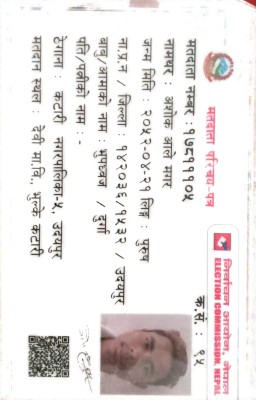 निर्वाचन आयोग, नेपाल
ELECTION COMMISSION, NEPAL
मतदाता परिचय-पत्र
क्र.सं. : १५
मतदाता नम्बर : १७८१११०५
नामथर : अशोक आले मगर
जन्म मिति : २०५२-०४-२१ लिङ्ग : पुरुष
ना.प्र.नं / जिल्ला : १४२०३६/१५३२ / उदयपुर
बाबु/आमाको नाम : भुपध्वज / दुर्गा
पति/पत्नीको नाम : -
ठेगाना : कटारी नगरपालिका-५, उदयपुर
मतदान स्थल : देवी मा.वि., भुल्के कटारी